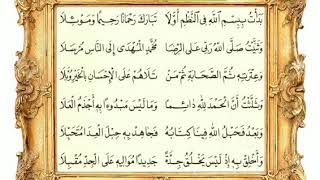 بَدَأْتُ بِبِسْمِ اللَّهِ فِي النَّظْمِ أَوَّلَا تَبَارَكَ رَحْمَانًا رَحِيمًا وَمَوْئِلَا
وَثَنَّيْتُ صَلَّى اللَّهُ رَبِّي عَلَى الرِّضَا مُحَمَّدٍ الْمُهْدَى إِلَى النَّاسِ مُرْسَلَا
وَعِتْرَتِهِ ثُمَّ الصَّحَابَةِ ثُمَّ مَنْ تَلَاهُمْ عَلَى الْإِحْسَانِ بِالْخَيْرِ وُبَّلَا
وَثَلَّثْتُ أَنَّ الْحَمْدَ لِلَّهِ دَائِمًا وَمَا لَيْسَ مَبْدُوءًا بِهِ أَجْذَمُ الْعَلَا
وَبَعْدُ فَحَبْلُ اللَّهِ فِينَا كِتَابُهُ فَجَاهِدْ بِهِ حِبْلَ الْعِدَا مُتَحَبِّلَا
وَأَخْلِقْ بِهِ إِذْ لَيْسَ يَخْلُقُ جِدَّةً جَدِيدًا مُوَالِيهِ عَلَى الْجِدِّ مُقْبِلَا